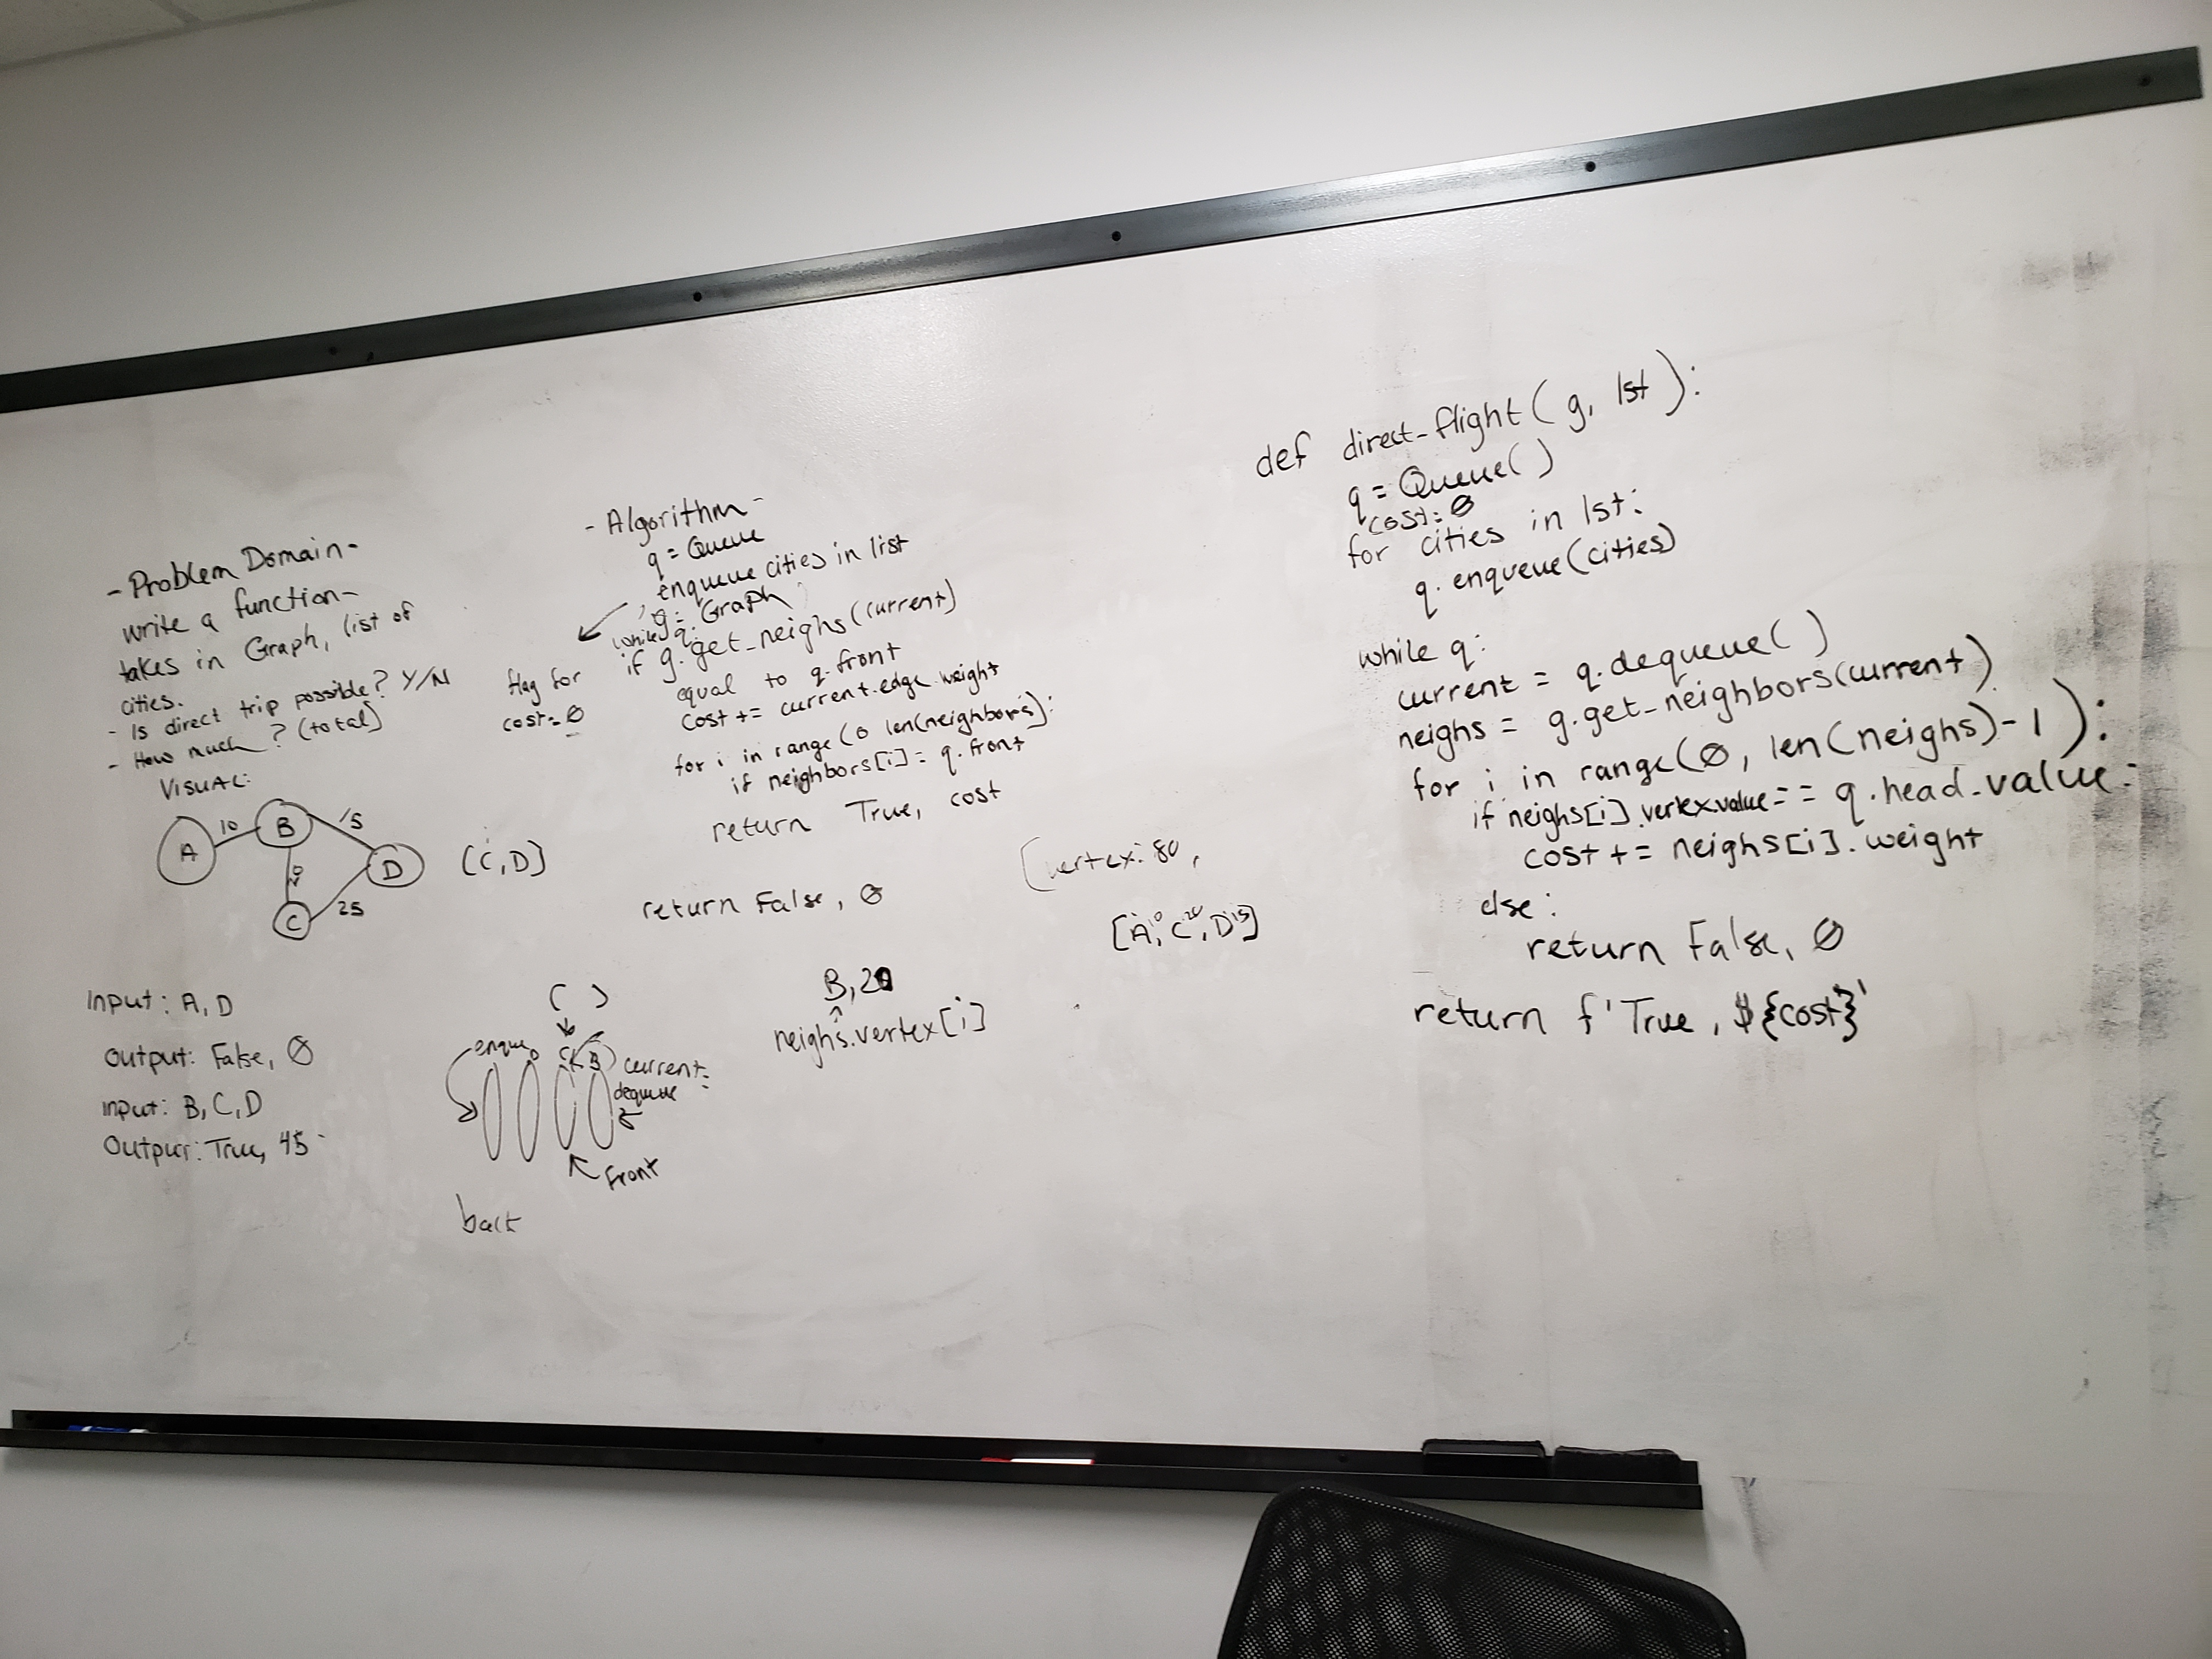 - Problem Domain -
write a function -
takes in Graph, list of
cities.
- Is direct trip possible? Y/N
- How much? (total)
VISUAL:
A 10 B 15
D
C 25
[C, D]
Input: A, D
Output: False, 0
Input: B, C, D
Output: True, 45
- Algorithm -
q = Queue
enqueue cities in list
g = Graph
while q:
if g.get_neighs(current)
equal to q.front
flag for
cost = 0
cost += current.edge.weight
for i in range(0 len(neighbors):
if neighbors[i] = q.front
return True, cost
return False, 0
( )
enque D C B current:
dequeue
Front
back
B, 20
neighs.vertex[i]
[vertex: 80,
[A,10 C,20 D15]
def direct-flight(g, lst):
q = Queue()
cost = 0
for cities in lst:
q.enqueue(cities)
while q:
current = q.dequeue()
neighs = g.get_neighbors(current)
for i in range(0, len(neighs)-1):
if neighs[i].vertex.value == q.head.value:
cost += neighs[i].weight
else:
return False, 0
return f'True, ${cost}'